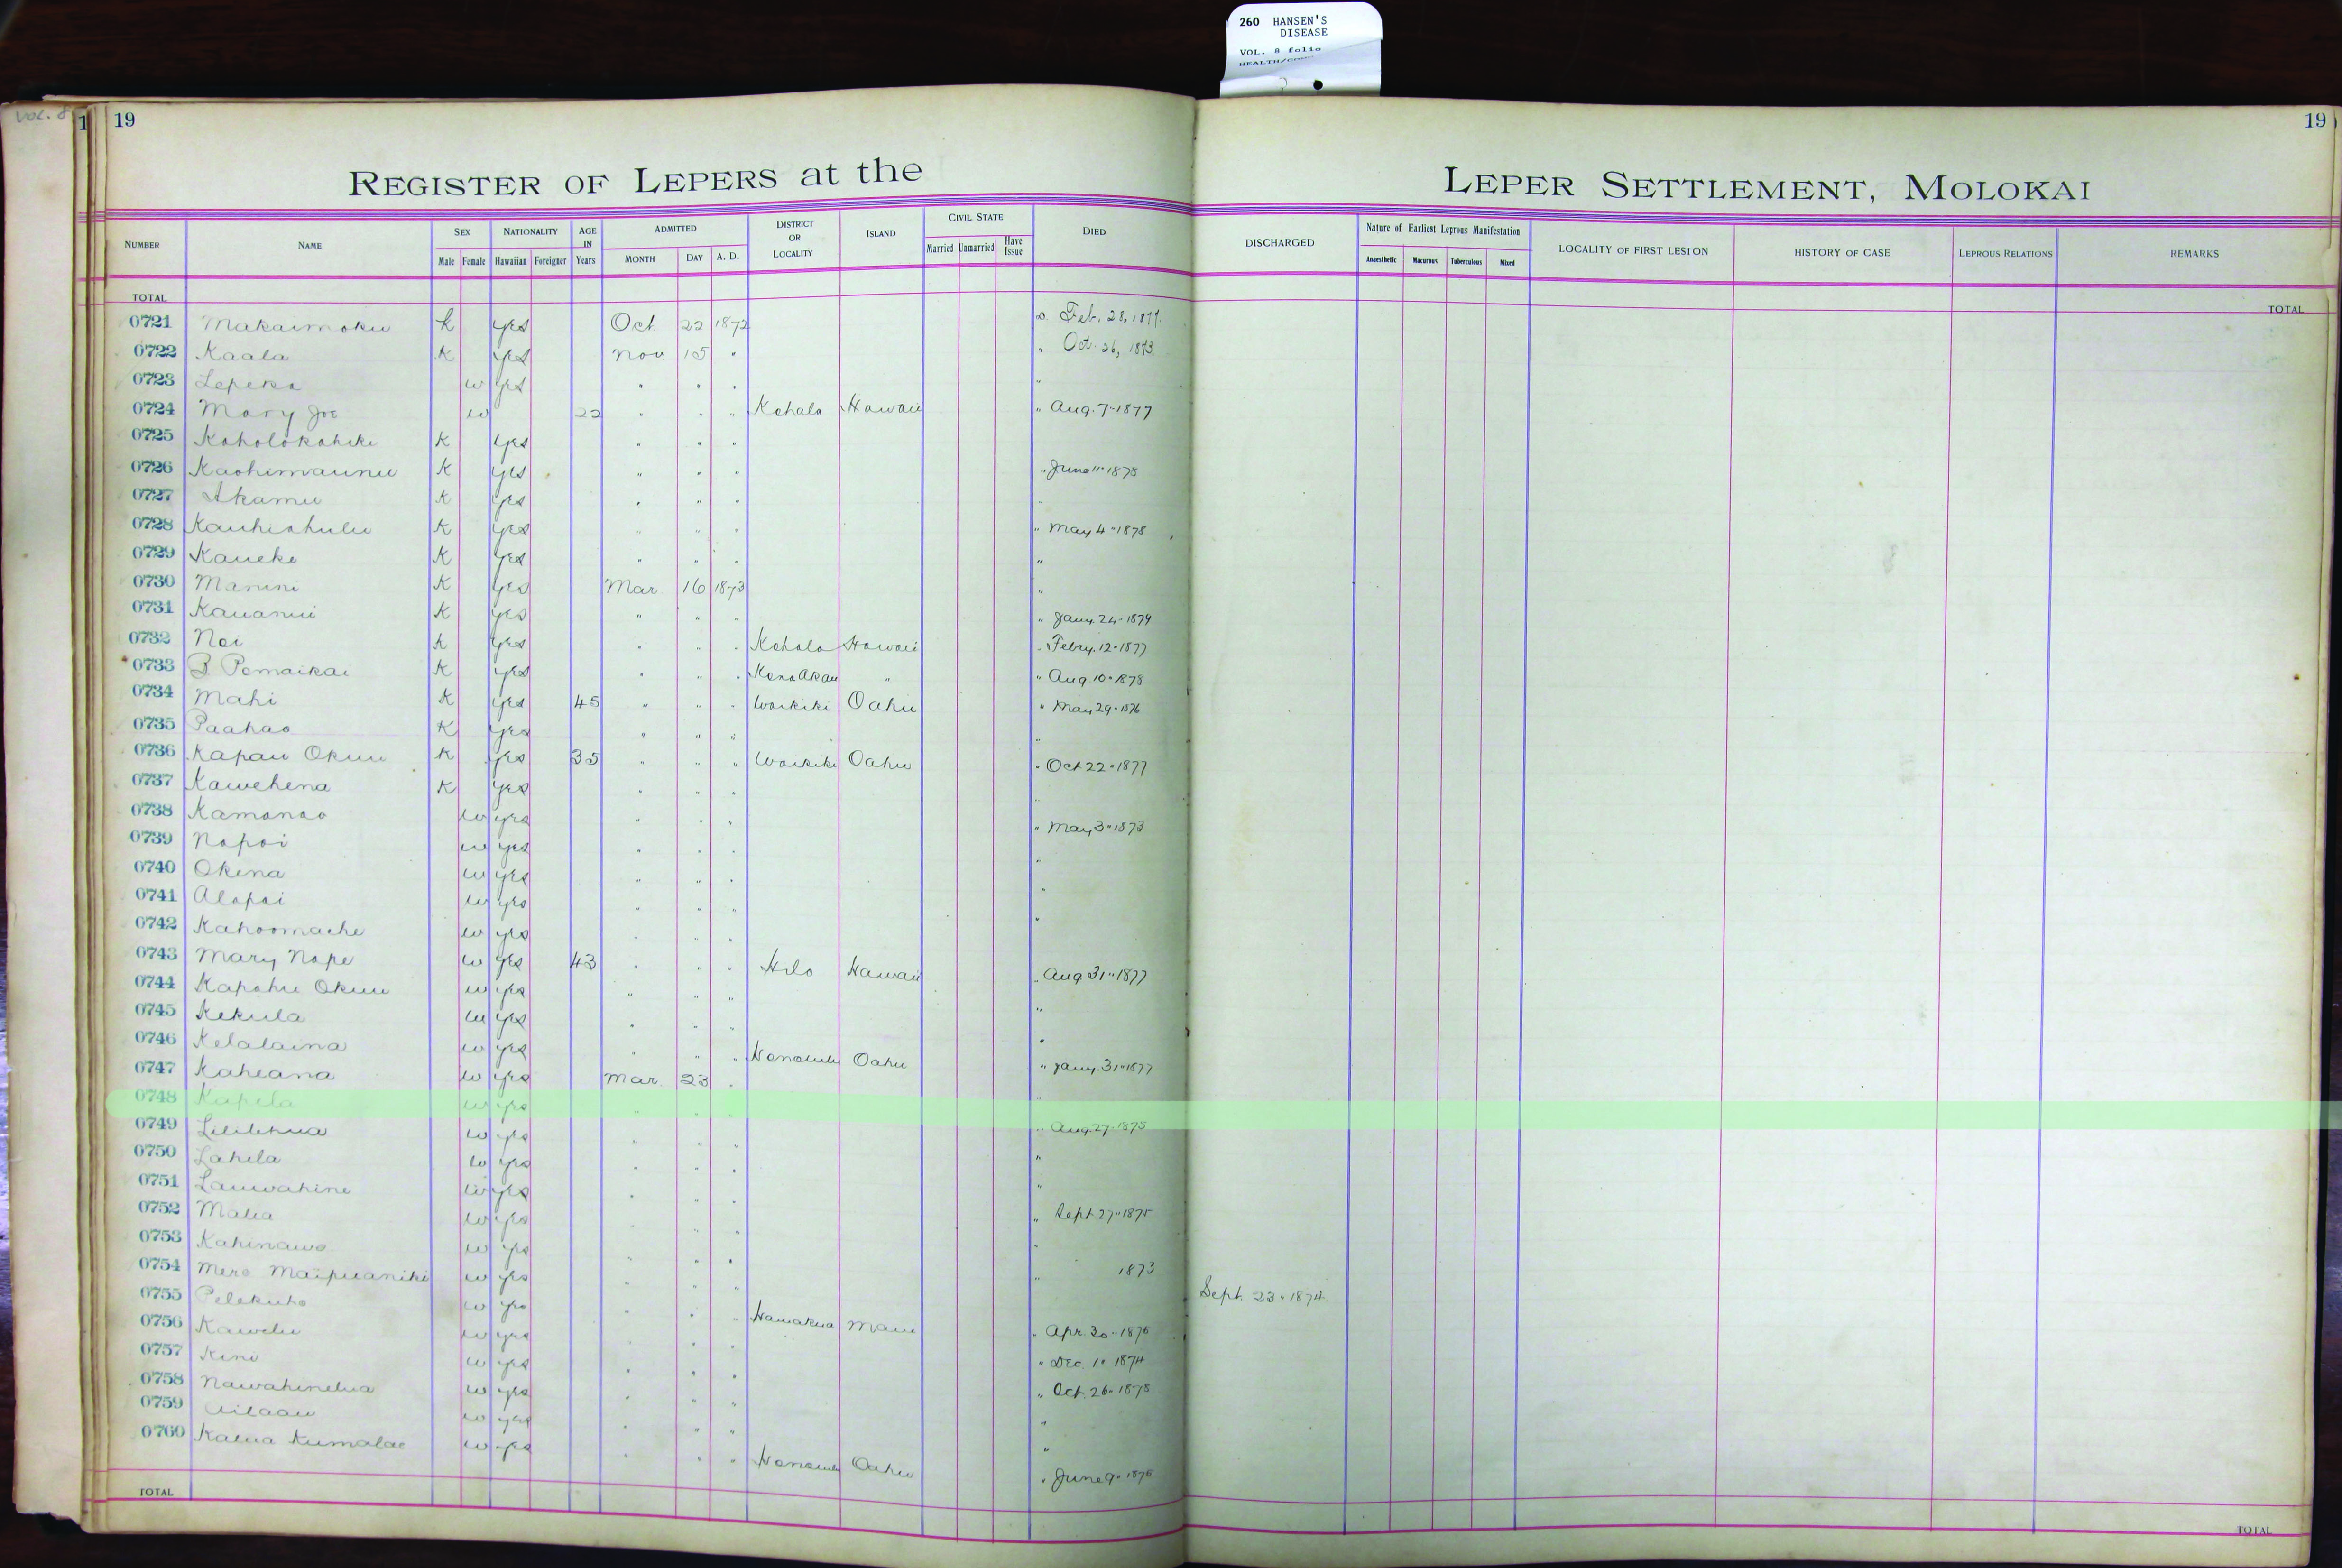 260 HANSEN'S
DISEASE
VOL. 8 folio
Vol. 8
1
19
19
REGISTER OF LEPERS at the LEPER SETTLEMENT, MOLOKAI
NUMBER NAME SEX Male Female NATIONALITY Hawaiian Foreigner AGE IN Years ADMITTED MONTH DAY A. D. DISTRICT OR LOCALITY ISLAND CIVIL STATE Married Unmarried Have Issue DIED DISCHARGED Nature of Earliest Leprous Manifestation Anaesthetic Macurous Tuberculous Mixed LOCALITY OF FIRST LESION HISTORY OF CASE LEPROUS RELATIONS REMARKS
TOTAL TOTAL
0721 Makaimoku k yes Oct 22 1872 Feb. 28, 1877.
0722 Kaala K yes Nov 15 " " Oct. 26, 1873.
0723 Lepeka w yes " " " "
0724 Mary Joe w 22 " " " Kohala Hawaii " Aug. 7-1877
0725 Koholokahiki K yes " " "
0726 Kaohimaunu K yes " " " " June 11 1878
0727 Akamu K yes " " " "
0728 Kauhiahulu K yes " " " " May 4-1878
0729 Kaueke K yes " " " "
0730 Manini K yes Mar 16 1873 "
0731 Kauanui K yes " " " " Jany. 24-1879
0732 Noi K yes " " " Kohala Hawaii " Febry. 12-1877
0733 B Pomaikai K yes " " " Kona Akau " " Aug 10-1878
0734 Mahi K yes 45 " " " Waikiki Oahu " May 29-1876
0735 Paahao K yes " " " "
0736 Kapau Okuu K yes 35 " " " Waikiki Oahu " Oct 22-1877
0737 Kawehena K yes " " " "
0738 Kamanao w yes " " " " May 3-1873
0739 Napoi w yes " " " "
0740 Okina w yes " " " "
0741 Alapai w yes " " " "
0742 Kahoomache w yes " " "
0743 Mary Nape w yes 43 " " " Hilo Hawaii " Aug 31-1877
0744 Kapahu Okuu w yes " " " "
0745 Kekula w yes " " " "
0746 Kelalaina w yes " " " Honolulu Oahu " Jany. 31-1877
0747 Kaheana w yes Mar 23 " "
0748 Kapela w yes " " " " Aug. 27-1875
0749 Lililehua w yes " " " "
0750 Lahela w yes " " " "
0751 Lauwahine w yes " " " " Sept. 27-1875
0752 Malia w yes " " " "
0753 Kahinawe w yes " " " " 1873
0754 Mere Maipuaniki w yes " " " Sept. 23-1874
0755 Pelekuho w yes " " " Hamakua Maui " Apr. 30-1876
0756 Kawelu w yes " " " " Dec. 10 1874
0757 Kini w yes " " " " Oct. 26-1878
0758 Nawahinelua w yes " " " "
0759 Ailaau w yes " " " "
0760 Kalua Kumalae w yes " " " Honolulu Oahu " June 9-1876
TOTAL TOTAL